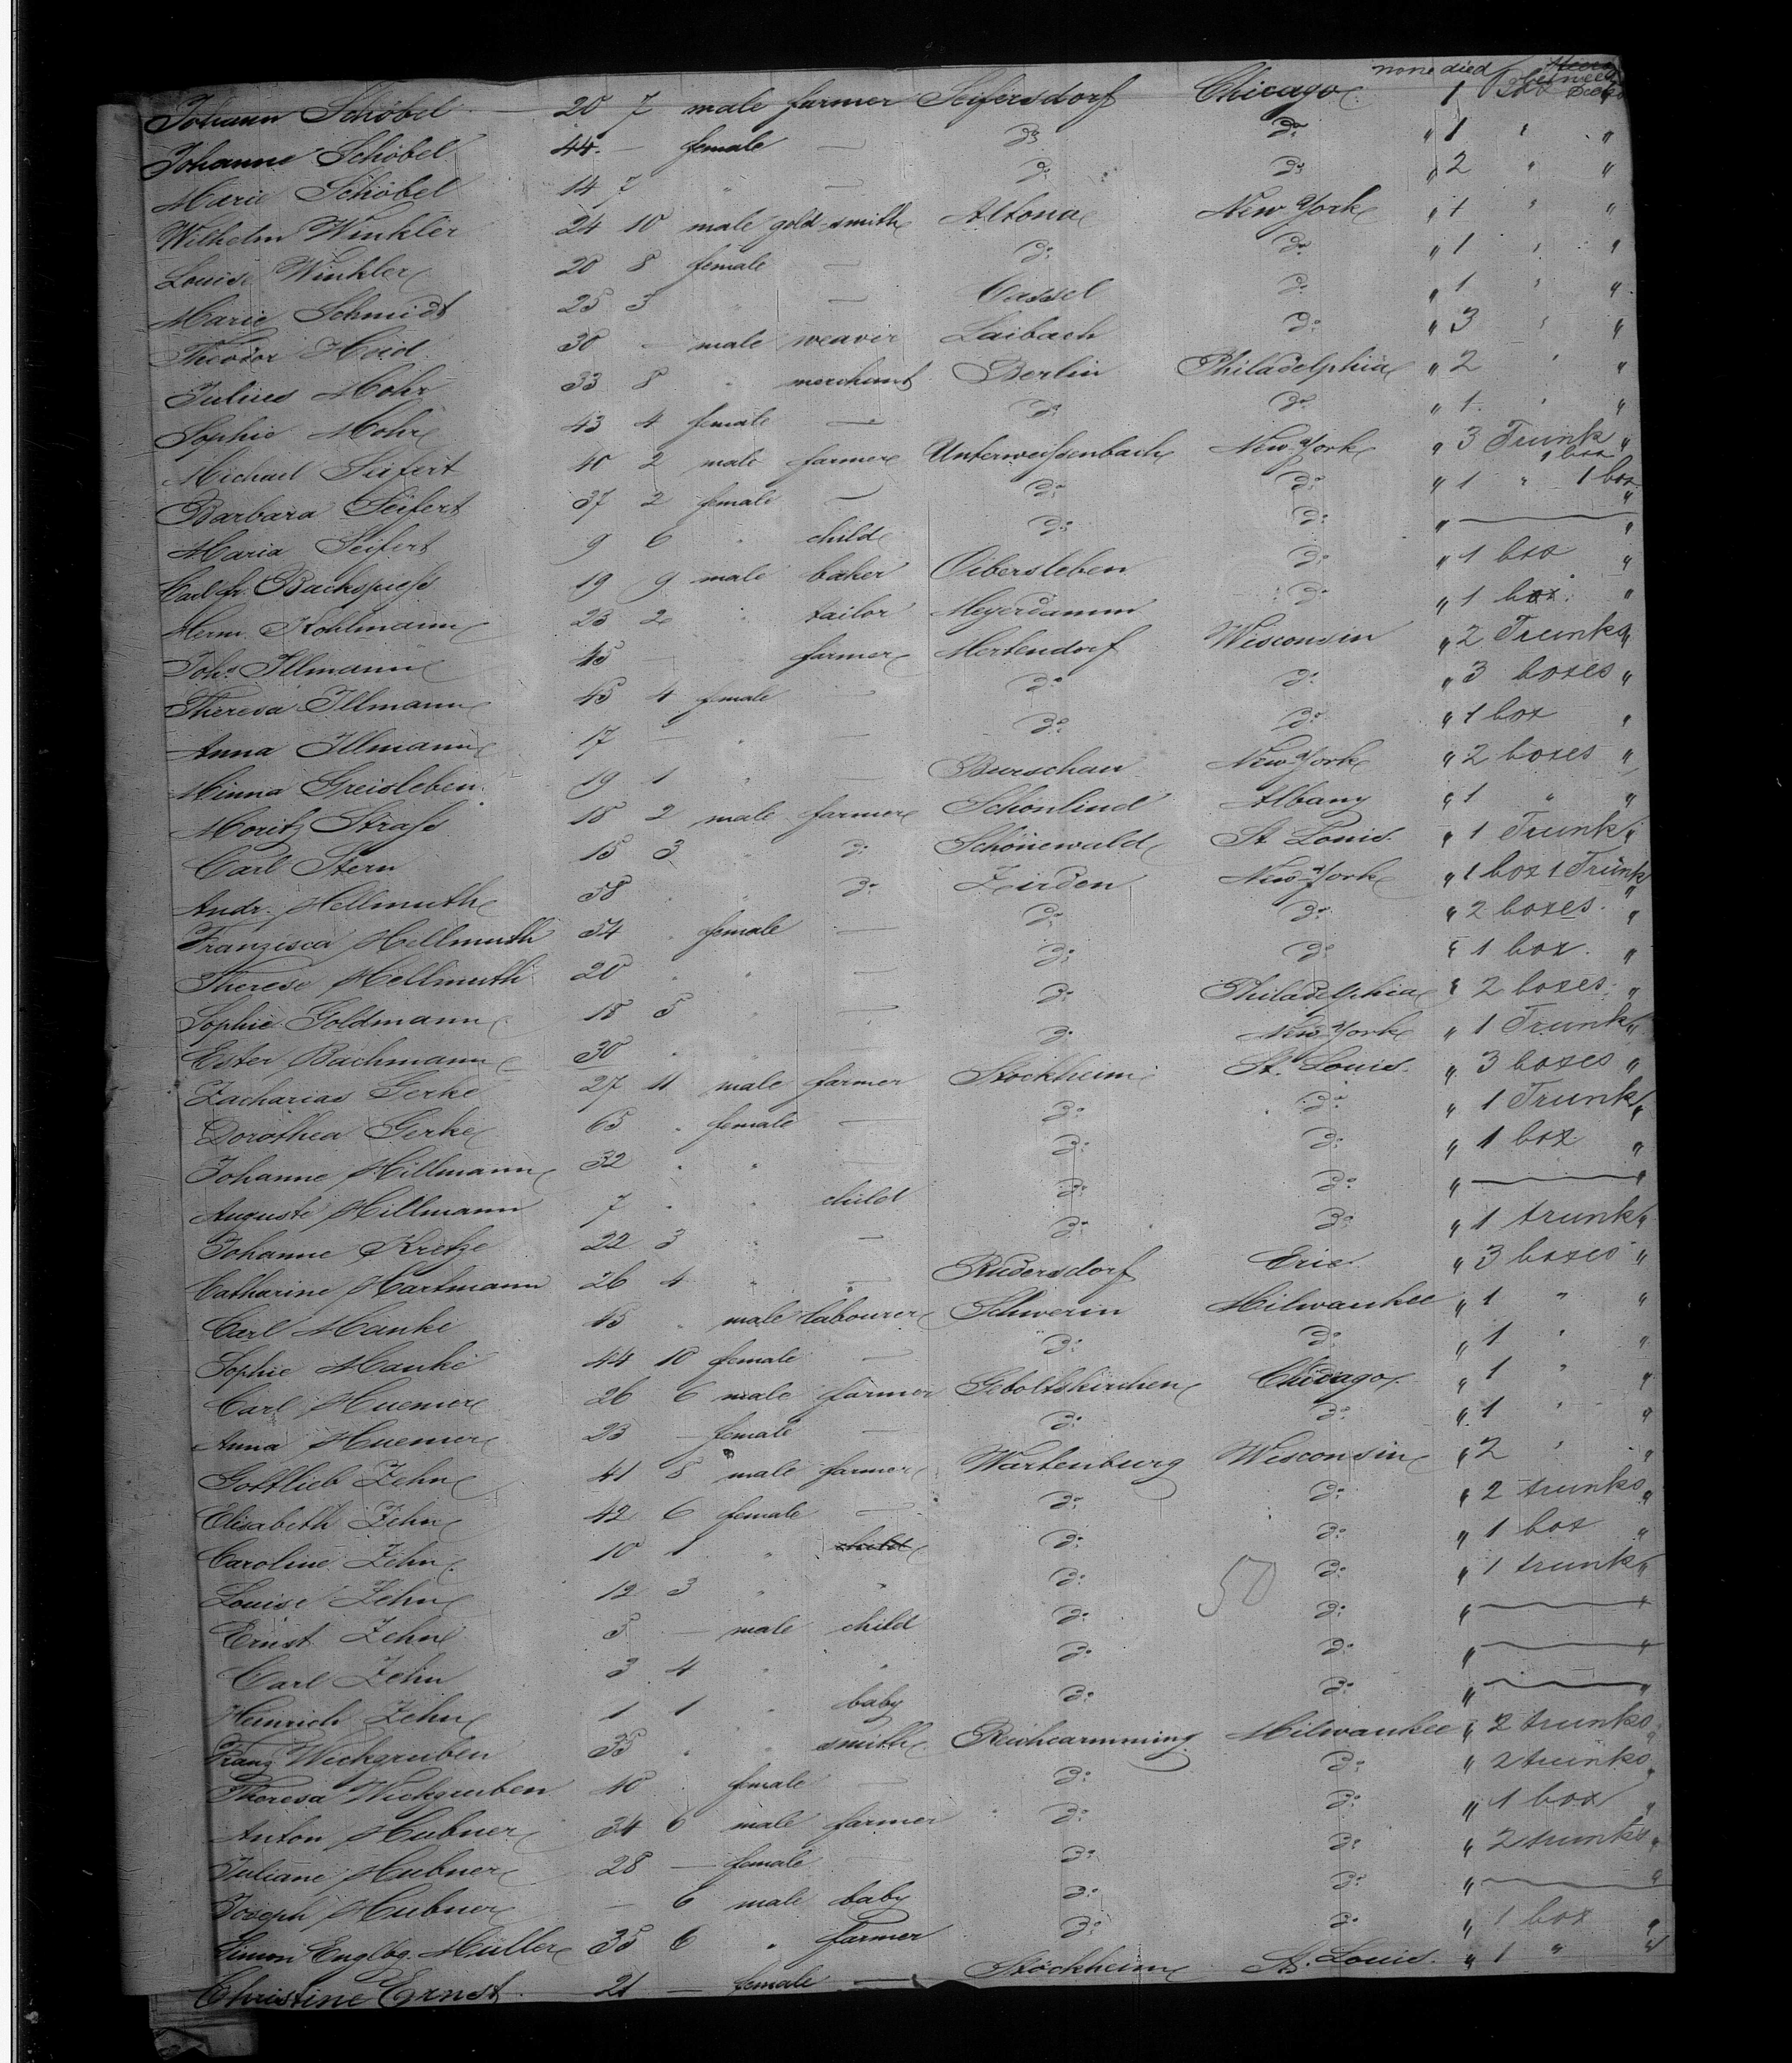 none died between Decks
Johann Schöbel 20 7 male farmer Seifersdorf Chicago 1
Johanne Schöbel 44 — female — do do " 1 " "
Marie Schöbel 14 7 " — do do " 2 " "
Wilhelm Winkler 24 10 male gold-smith Altona New York " 1 " "
Louise Winkler 20 8 female — do do " 1 " "
Marie Schmidt 25 3 — Cassel do " 1 " "
Theodor Heid 30 — male weaver Laibach do " 3 " "
Julius Mohr 33 8 " merchant Berlin Philadelphia " 2 " "
Sophie Mohr 43 4 female — do do " 1 " "
Michael Seifert 40 2 male farmer Unterweißenbach New York " 3 Trunk 1 box "
Barbara Seifert 37 2 female — do do " 1 " 1 box "
Maria Seifert 9 6 " child do do " — "
Carl fr. Backspieß 19 9 male baker Oibersleben do " 1 box "
Herm. Kohlmann 23 2 " tailor Meyerdamm do " 1 box "
Johs. Illmann 45 — " farmer Mertendorf Wisconsin " 2 Trunks "
Theresa Illmann 45 4 female — do do " 3 boxes "
Anna Illmann 17 — " — do do " 1 box "
Minna Greisleben 19 1 " — Burschau New York " 2 boxes "
Moritz Straß 18 2 male farmer Schönlind Albany " 1 " "
Carl Stern 15 3 " do Schönewald St. Louis " 1 Trunk "
Andr. Hellmuth 58 " " do Zirden New York " 1 box 1 Trunk "
Franzisca Hellmuth 54 " female — do do " 2 boxes "
Therese Hellmuth 20 " " — do do " 1 box "
Sophie Goldmann 18 5 " — do Philadelphia " 2 boxes "
Ester Bachmann 30 " " do New York " 1 Trunk "
Zacharias Gerke 27 11 male farmer Stockheim St. Louis " 3 boxes "
Dorothea Gerke 65 " female — do do " 1 Trunk "
Johanne Hillmann 32 " " — do do " 1 box "
Auguste Hillmann 7 " " child do do " — "
Johanne Kretze 22 3 " — do do " 1 trunk "
Catharine Hartmann 26 4 " — Rudersdorf Erie " 3 boxes "
Carl Manke 45 " male labourer Schwerin Milwaukee " 1 " "
Sophie Manke 44 10 female — do do " 1 " "
Carl Huemer 26 6 male farmer Geboltskirchen Chicago " 1 " "
Anna Huemer 23 — female — do do " 1 " "
Gottlieb Zehn 41 8 male farmer Wartenburg Wisconsin " 2 " "
Elisabeth Zehn 42 6 female — do do " 2 trunks "
Caroline Zehn 10 1 " child do do " 1 box "
Louise Zehn 12 3 " " do 50 do " 1 trunk "
Ernst Zehn 5 — male child do do " — "
Carl Zehn 3 4 " " do do " — "
Heinrich Zehn 1 1 " baby do do " — "
Franz Wickgruben 35 " " smith Reichramming Milwaukee " 2 trunks "
Theresa Wickgruben 40 " female — do do " 2 trunks "
Anton Hubner 34 6 male farmer do do " 1 box "
Juliane Hubner 28 — female — do do " 2 trunks "
Joseph Hubner — 6 male baby do do " — "
Simon Englbg. Müller 35 6 " farmer do do " 1 box "
Christine Ernst 21 — female — Stockheim St. Louis " 1 " "